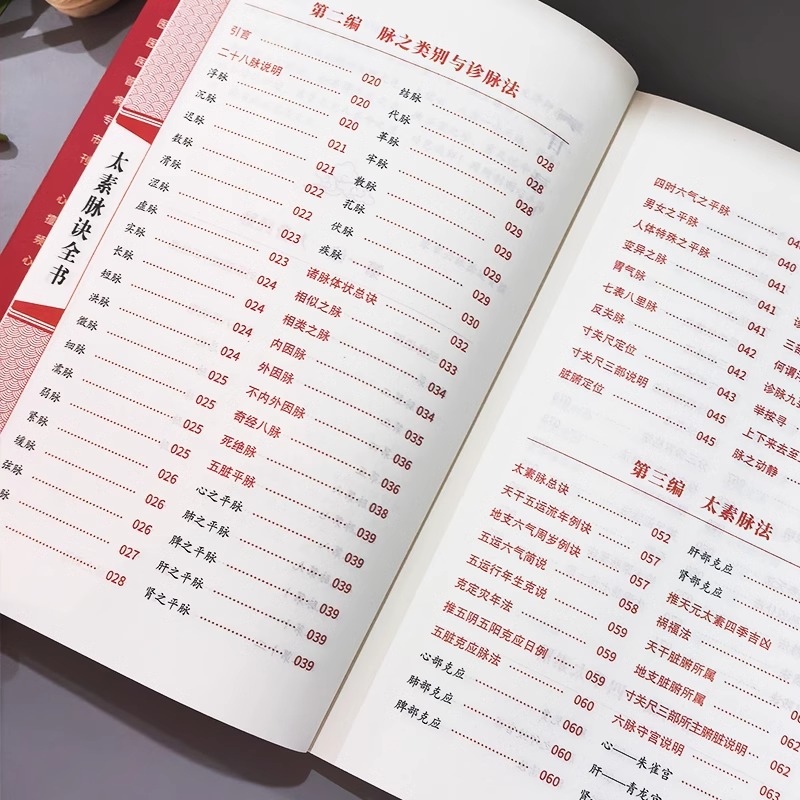 医
医
管
病
专
市
刊
心
擅
频
心
太素脉诀全书
第二编 脉之类别与诊脉法
引言 020
二十八脉说明 020
浮脉 020
沉脉 021
迟脉 021
数脉 022
滑脉 022
涩脉 023
虚脉 023
实脉 024
长脉 024
短脉 024
洪脉 024
微脉 025
细脉 025
濡脉 025
弱脉 025
紧脉 026
缓脉 026
弦脉 026
脉 027
028
结脉 028
代脉 028
革脉 028
牢脉 029
散脉 029
芤脉 029
伏脉 029
疾脉 030
诸脉体状总诀 032
相似之脉 033
相类之脉 034
内因脉 034
外因脉 035
不内外因脉 036
奇经八脉 036
死绝脉 038
五脏平脉 039
心之平脉 039
肺之平脉 039
脾之平脉 039
肝之平脉 039
肾之平脉 039
四时六气之平脉
男女之平脉 040
人体特殊之平脉 041
变异之脉 041
胃气脉 041
七表八里脉 042
反关脉 042
寸关尺定位 043
寸关尺三部说明 045
脏腑定位 045
三部
何谓浮
诊脉九
举按寻
上下来去至
脉之动静
第三编 太素脉法
太素脉总诀 052
天干五运流年例诀 057
地支六气周岁例诀 057
五运六气简说 058
五运行年生克说 059
克定灾年法 059
推五阴五阳克应日例 059
五脏克应脉法 060
心部克应 060
肺部克应 060
脾部克应 060
肝部克应
肾部克应
推天元太素四季吉凶
祸福法
天干脏腑所属
地支脏腑所属
寸关尺三部所主腑脏说明 062
六脉守宫说明 062
心——朱雀宫 063
肝——青龙宫
肾